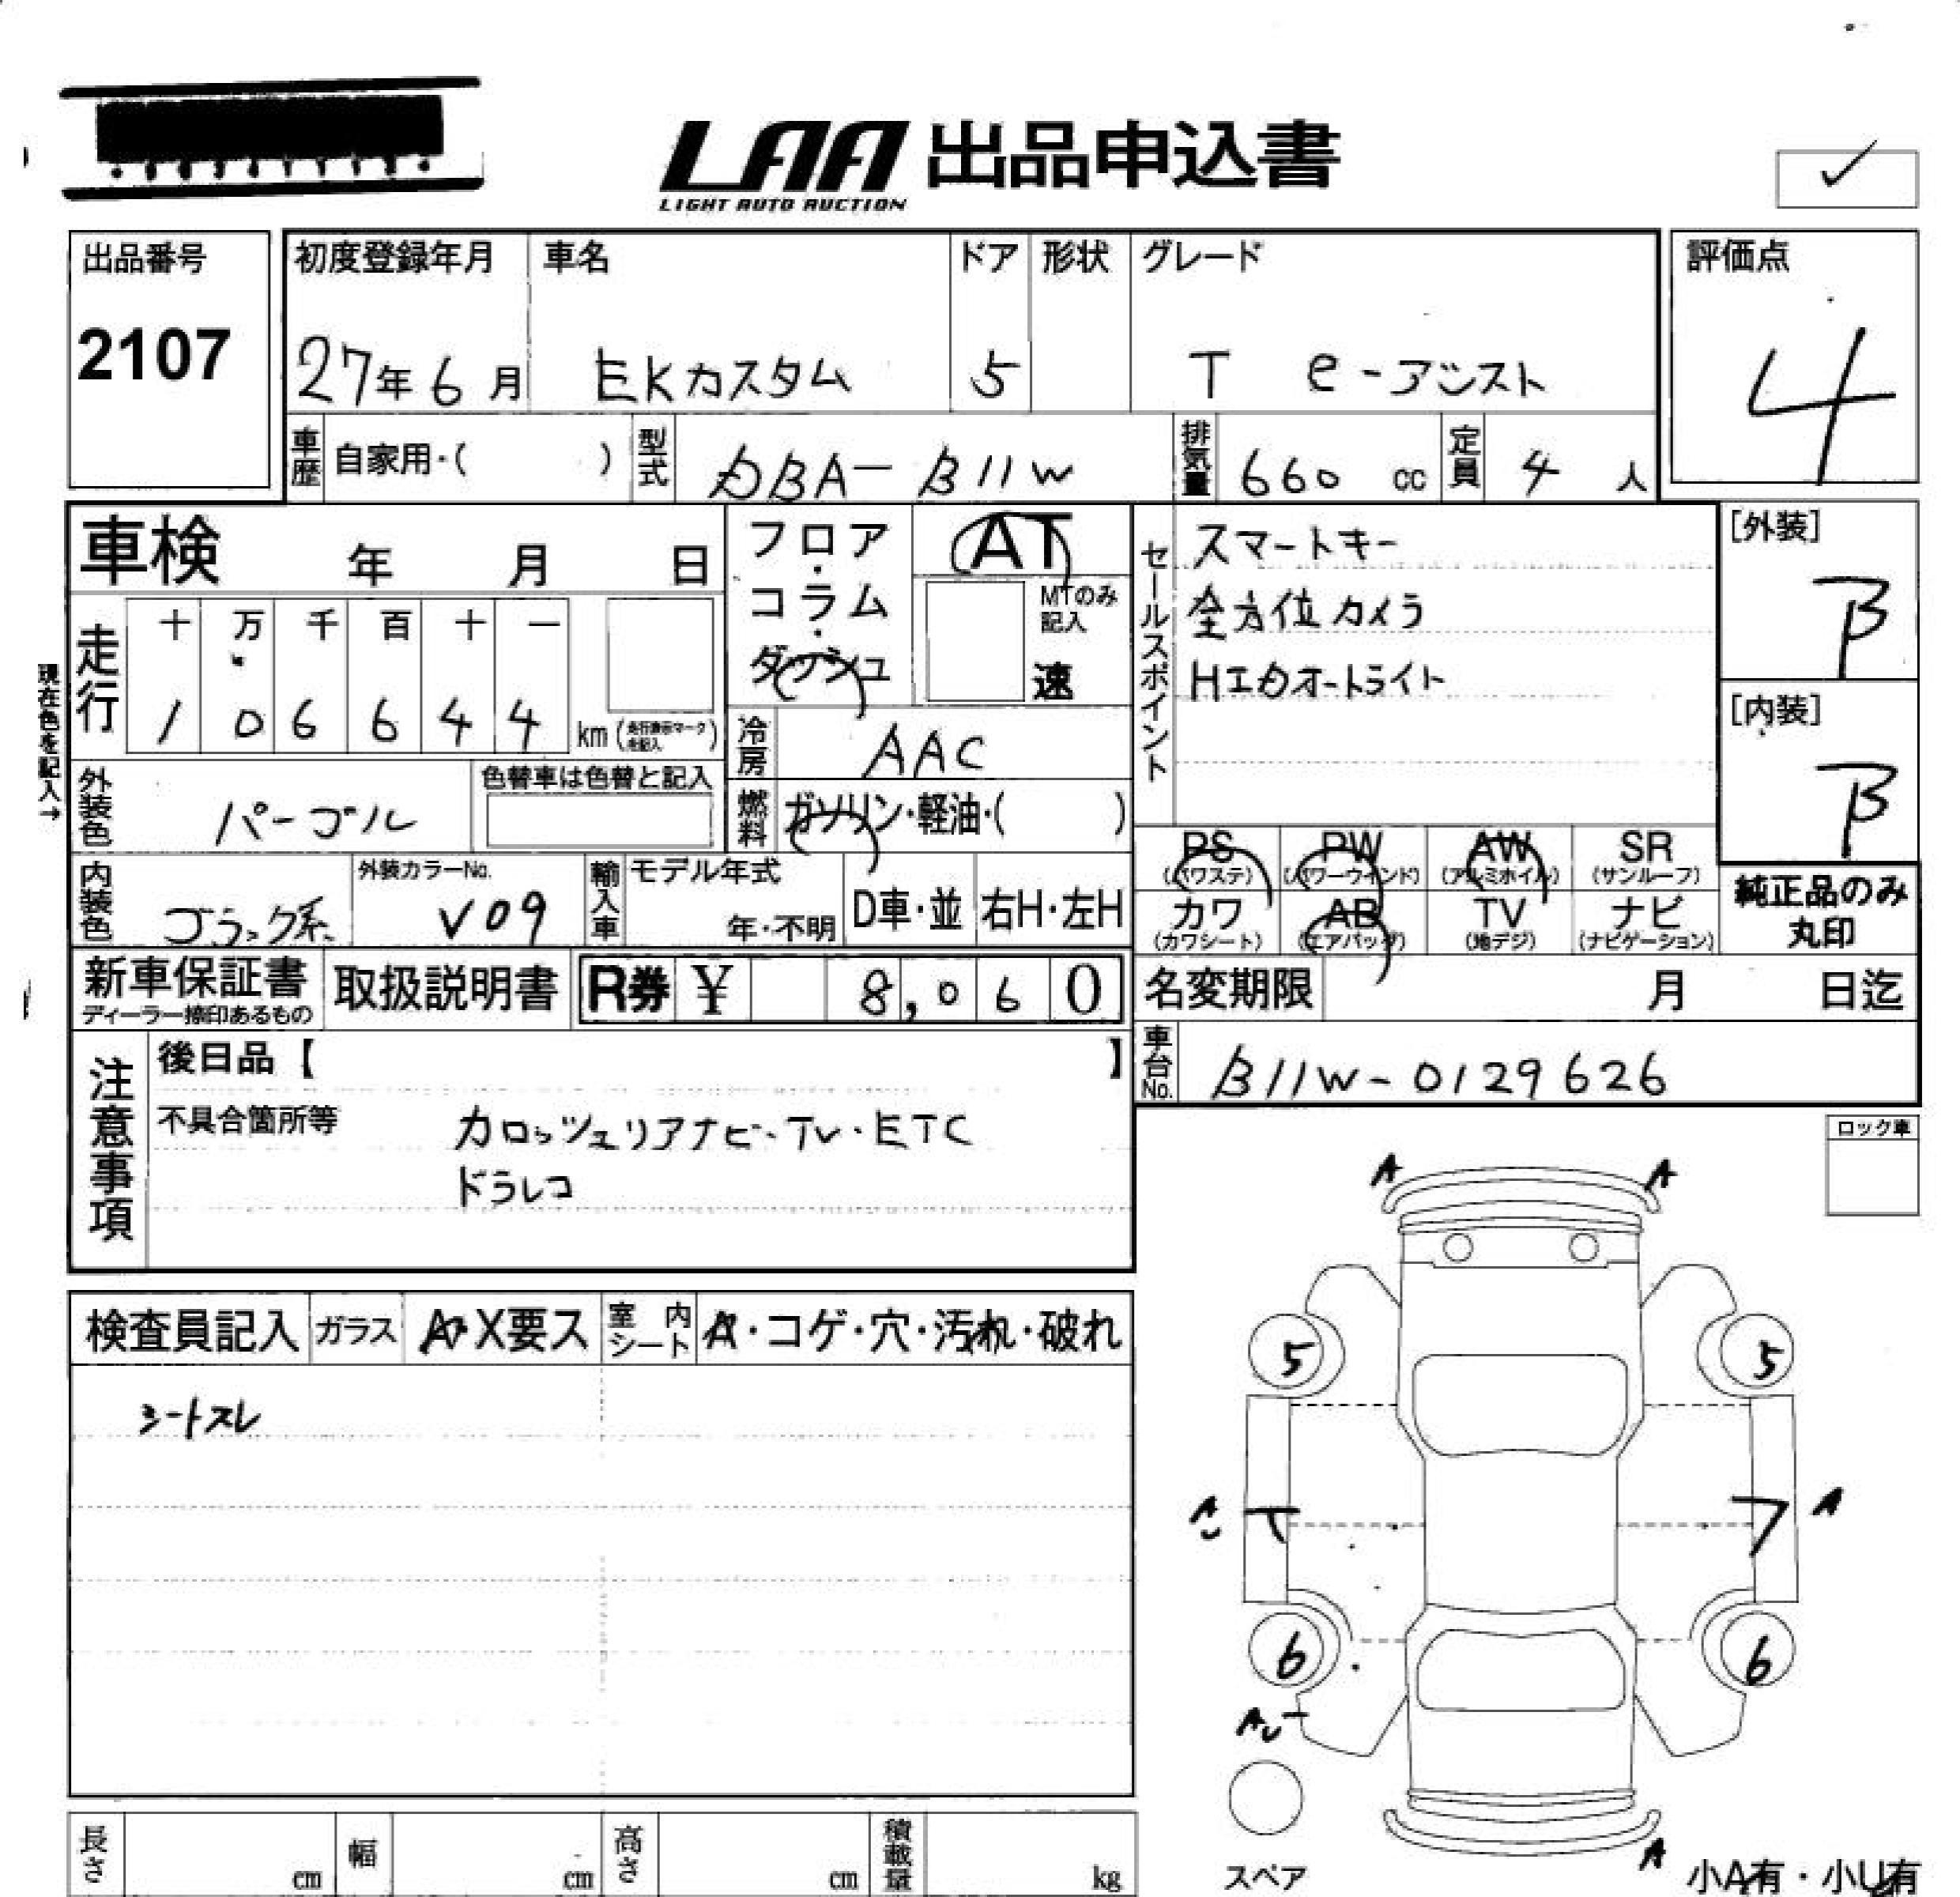 LAA 出品申込書
LIGHT AUTO AUCTION
出品番号
2107
初度登録年月 車名 ドア 形状 グレード
27年 6月 EKカスタム 5 T e-アシスト
評価点
4
車歴 自家用・( ) 型式 DBA-B11W 排気量 660 cc 定員 4 人
車検 年 月 日
フロア・コラム・ダッシュ
AT
MTのみ記入
速
現在色を記入→
走行 十 万 千 百 十 一
1 0 6 6 4 4 km
冷房 AAC
セールスポイント
スマートキー
全方位カメラ
HIDオートライト
[外装]
B
[内装]
B
外装色 パープル 色替車は色替と記入
燃料 ガソリン・軽油・( )
内装色 ブラック系 外装カラーNo. V09
輸入車 モデル年式 年・不明 D車・並 右H・左H
PS (パワステ) PW (パワーウインド) AW (アルミホイル) SR (サンルーフ)
カワ (カワシート) AB (エアバッグ) TV (地デジ) ナビ (ナビゲーション)
純正品のみ丸印
新車保証書 ディーラー捺印あるもの 取扱説明書 R券 ¥ 8,060
名変期限 月 日迄
車台No. B11W-0129626
注意事項
後日品【 】
不具合箇所等 カロッツェリアナビ・TV・ETC
ドラレコ
ロック車
検査員記入 ガラス A・X要ス 室内シート A・コゲ・穴・汚れ・破れ
シートスレ
A A
5 5
A
6 6
A
スペア
小A有・小U有
長さ cm 幅 cm 高さ cm 積載量 kg